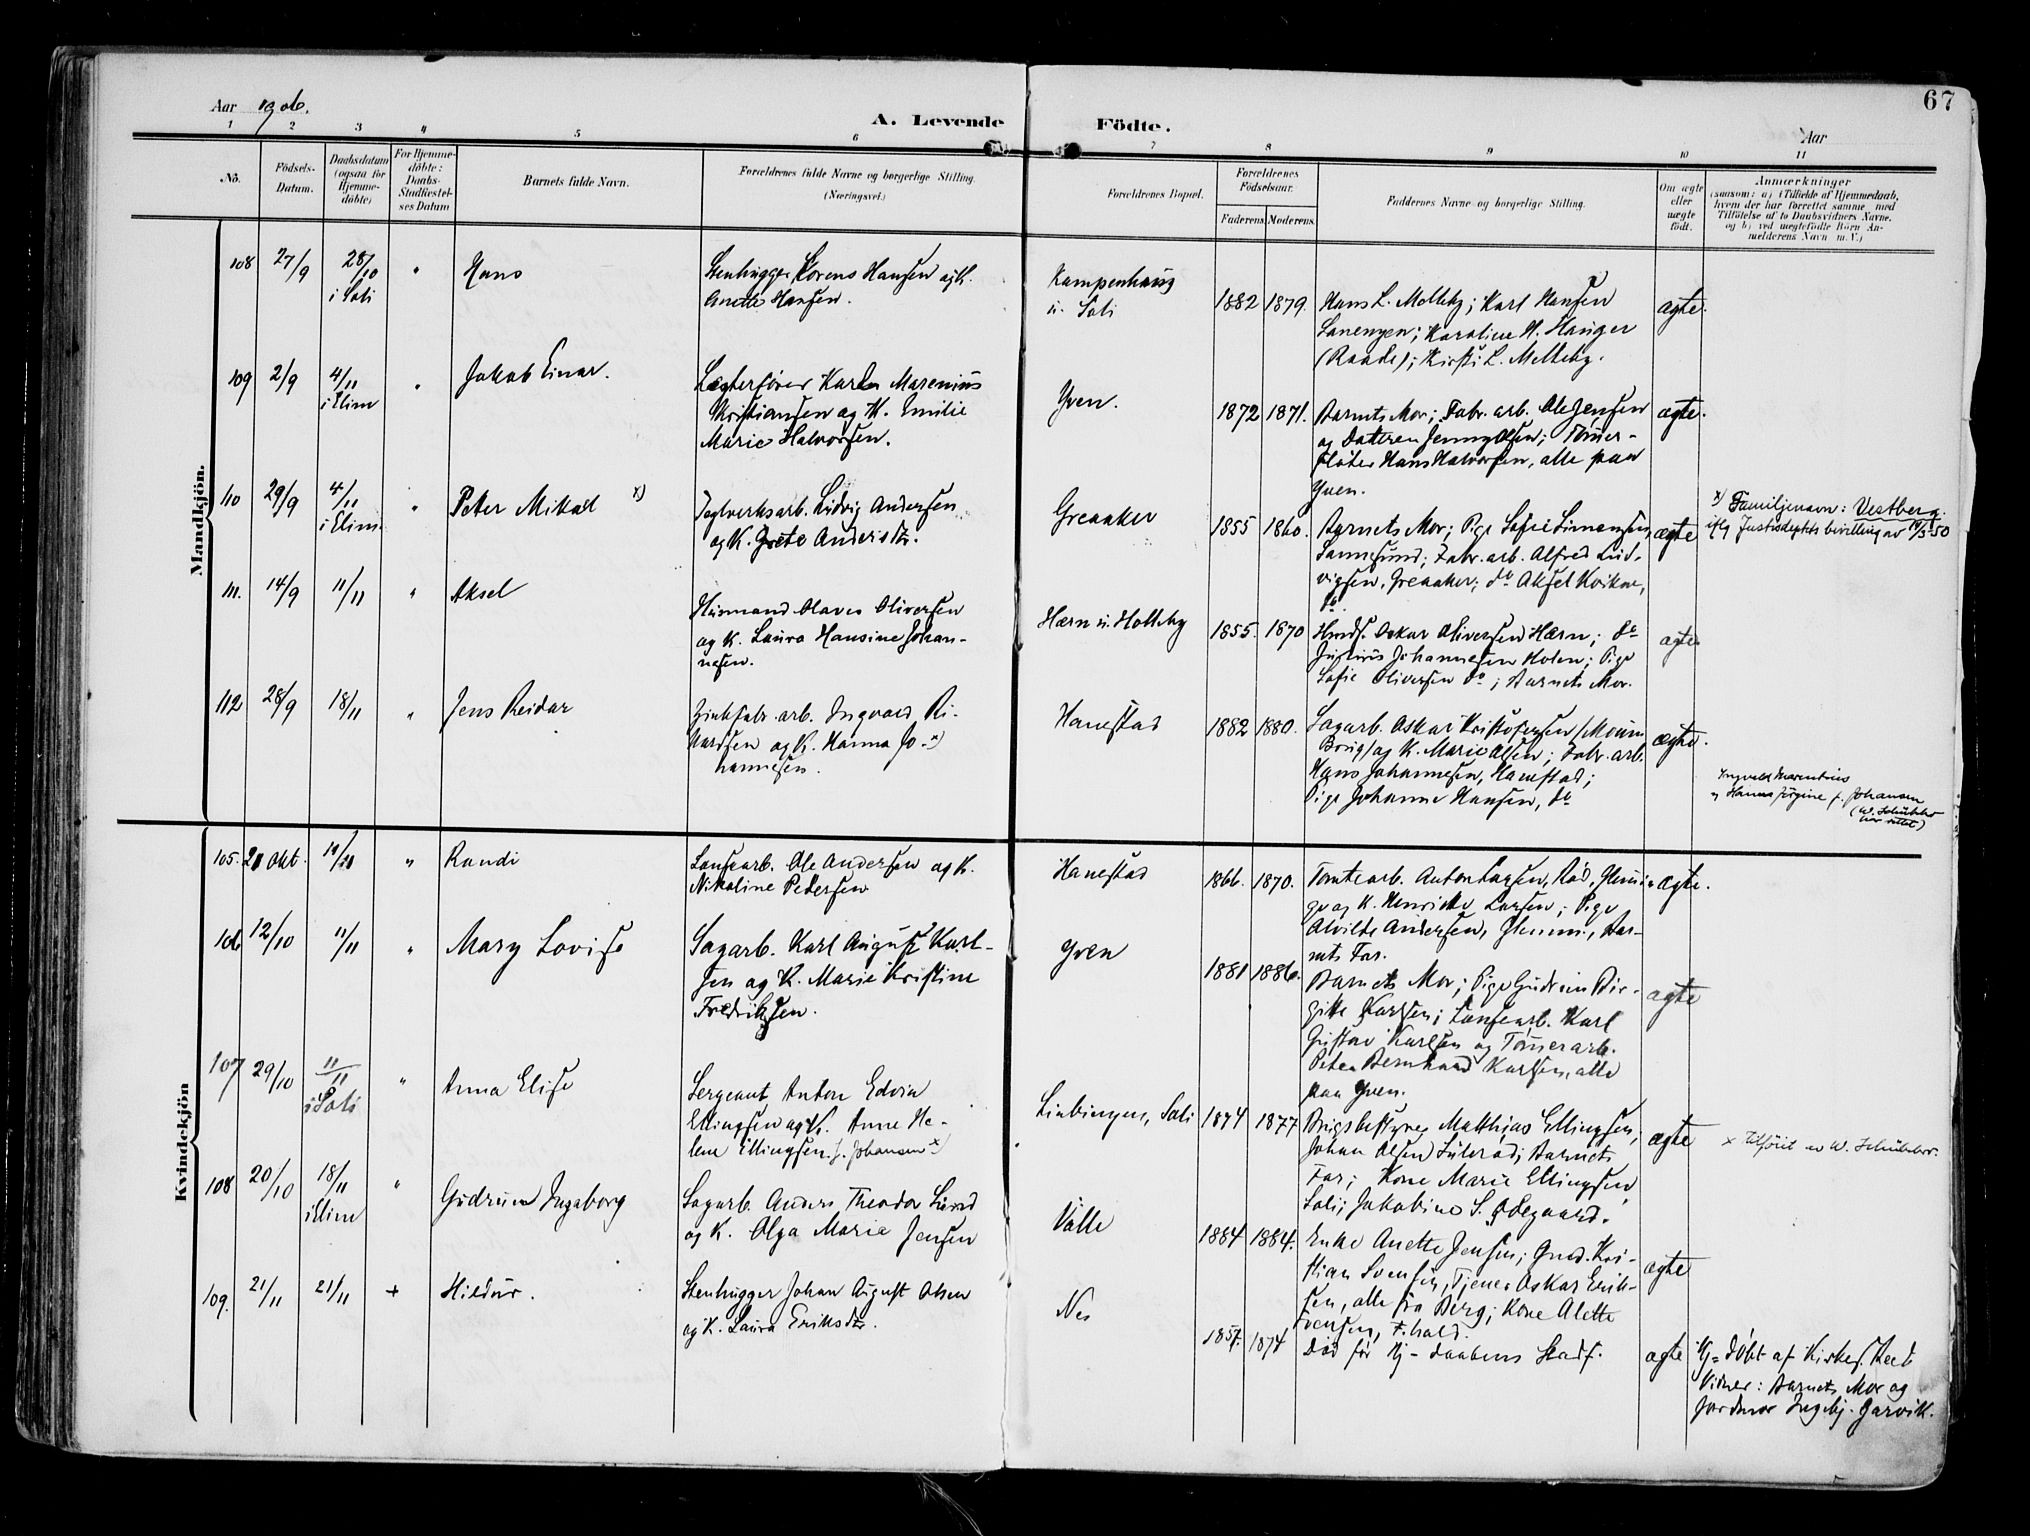 67
Aar 1906.
A. Levende Födte.
Aar
1 2 3 4 5 6 7 8 9 10 11
No.
Födsels-
Datum.
Daabsdatum
(ogsaa for
Hjemme-
döbte)
For Hjemme-
döbte:
Daabs-
Stadfæstel-
ses Datum
Barnets fulde Navn.
Forældrenes fulde Navne og borgerlige Stilling.
(Næringsvei.)
Forældrenes Bopæl.
Forældrenes
Födselsaar.
Faderens Moderens.
Faddernes Navne og borgerlige Stilling.
Om ægte
eller
uægte
födt.
Anmærkninger
(saasom: a) i Tilfælde af Hjemmedaab,
hvem der har forrettet samme, med
Tilföielse af to Daabsvidners Navne,
og b) ved uægtefödte Börn An-
melderens Navn m. V.)
Mandkjön.
108 27/9 28/10 i Soli " Hans
Stenhugger Lorens Hansen og K.
Anette Hansen.
Kampenhaug
u. Soli
1882 1879.
Hans L. Melleby; Karl Hansen
Lanengen; Karoline H. Hauger
(Raade); Kirsti L. Melleby.
ægte.
109 2/9 4/11 i Elim " Jakob Einar.
Lægterfører Karl Marenius
Kristiansen og K. Emilie
Marie Halvorsen.
Yven.
1872 1871.
Barnets Mor; Fabr. arb. Ole Jensen
og Datteren Jenny Olsen; Tømmer-
fløter Hans Halvorsen, alle paa
Yven.
ægte.
110 29/9 4/11 i Elim. " Peter Mikal x)
Teglverksarb. Ludvig Andersen
og K. Grete Andersdtr.
Greaaker
1855 1860.
Barnets Mor; Pige Sofie Simensen,
Sannesund; Fabr. arb. Alfred Lud-
vigsen, Greaaker; do Aksel Kvikne,
do.
ægte
x) Familjenavn: Vestberg.
iflg Justisdeptets bevilling av 19/5-50
111. 14/9 11/11 " Aksel
Husmand Olaves Oliversen
og K. Laura Hansine Johan-
nesen.
Hærn u. Holleby
1855. 1870
Husf. Oskar Oliversen Hærn; do
Julius Johannesen Holen; Pige
Sofie Oliversen do; Barnets Mor.
ægte
112 28/9 18/11 " Jens Reidar
Zinkfabr. arb. Ingvald Ri-
kardsen og K. Hanna Jo- x)
hannesen.
Hanestad
1882 1880.
Sagarb. Oskar Kristofersen /Moum
Brug/ og K. Marie Olsen; Fabr. arb.
Hans Johannesen, Hanestad;
Pige Johanne Hansen, do
ægte.
Ingvald Marentius
og Hanna Jørgine f. Johansen
(W. Schübeler
har rettet)
Kvindekjön
105. 21 Okt. " Randi
Landsarb. Ole Andersen og K.
Nikoline Pedersen
Hanestad
1866. 1870.
Tomtearb. Anton Larsen, Rød, Glemmin-
ge og K. Henriette Larsen; Pige
Alvilde Andersen, Glemm., Bar-
nets Far.
ægte.
106 12/10 11/11 " Mary Lovise
Sagarb. Karl August Karl-
sen og K. Marie Kristine
Fredriksen.
Yven
1881 1886.
Barnets Mor; Pige Gudrun Bir-
gitte Karlsen; Landsarb. Karl
Gustav Karlsen og Tømmerarb.
Peter Bernhard Karlsen, alle
paa Yven.
ægte
107 29/10 11/11 i Soli " Anna Elise
Sergeant Anton Edvin
Ellingsen og K. Anne He-
lene Ellingsen f. Johansen x)
Lindingen, Soli
1874 1877
Brugsbestyrer Matthias Ellingsen;
Johan Olsen Sulerød; Barnets
Far; Kone Marie Ellingsen,
Soli; Jakobine S. Ødegaard.
ægte
x Tilføiet av W. Schübeler.
108 20/10 18/11 i Elim " Gudrun Ingeborg
Sagarb. Anders Theodor Lund
og K. Olga Marie Jensen
Valle
1884 1884.
Enke Anette Jensen; Gmd. Kri-
stian Svensen, Tjener Oskar Erik-
sen, alle fra Berg; Kone Alette
Svensen, F.hald.
ægte
109. 21/11 21/11 + Hildur.
Stenhugger Johan August Olsen
og K. Laura Eriksdtr.
Nes
1857. 1874
Død før Hj-daabens Stadf.
ægte
Hj-døbt af Kirkes. Reet
Vidner: Barnets Mor og
Jordmor Ingebj. Gjervik.